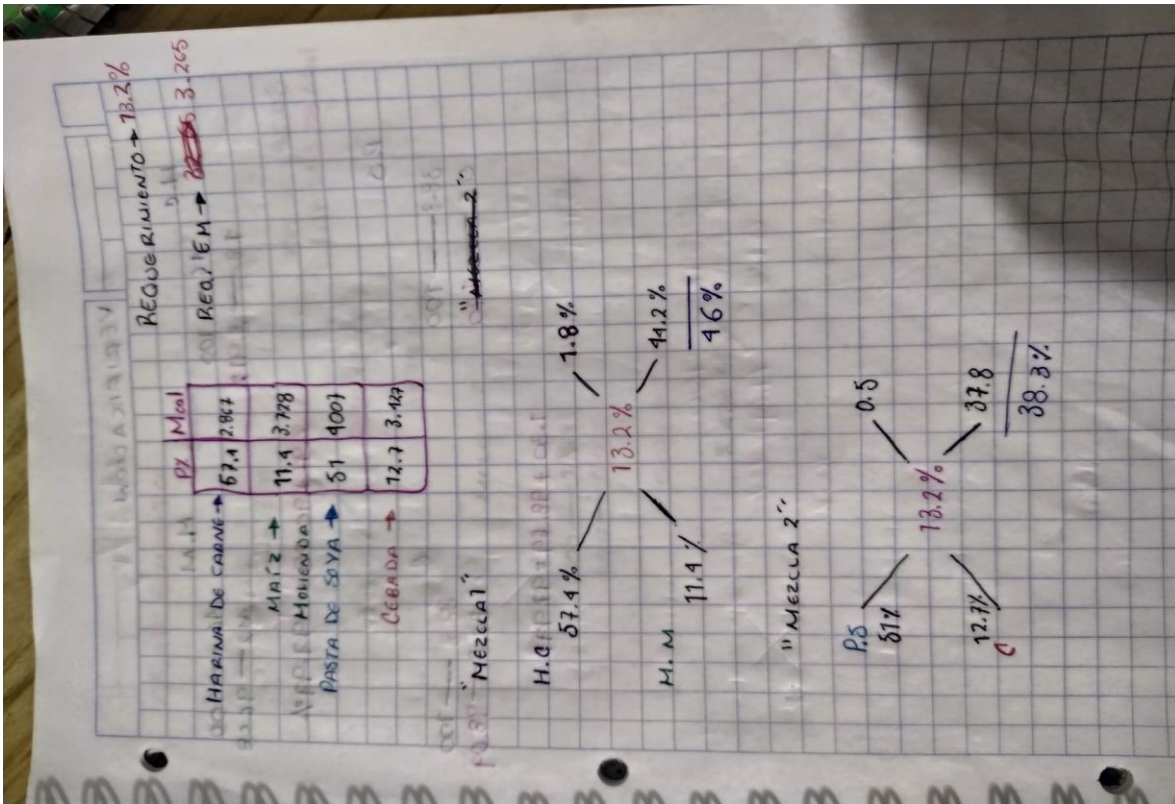 REQUERIMIENTO → 13.2%
P% Mcal
REQ) EM → 3.265
HARINA DE CARNE → 57.4 2.967
MAÍZ → 11.4 3.778
MOLIENDA
PASTA DE SOYA → 51 4007
CEBADA → 12.7 3.427
"MEZCLA 1"
"MEZCLA 2"
H.C
57.4% 1.8%
13.2%
M.M
11.4% 44.2%
46%
"MEZCLA 2"
P.S
51% 0.5
13.2%
12.7% 37.8
C
38.3%